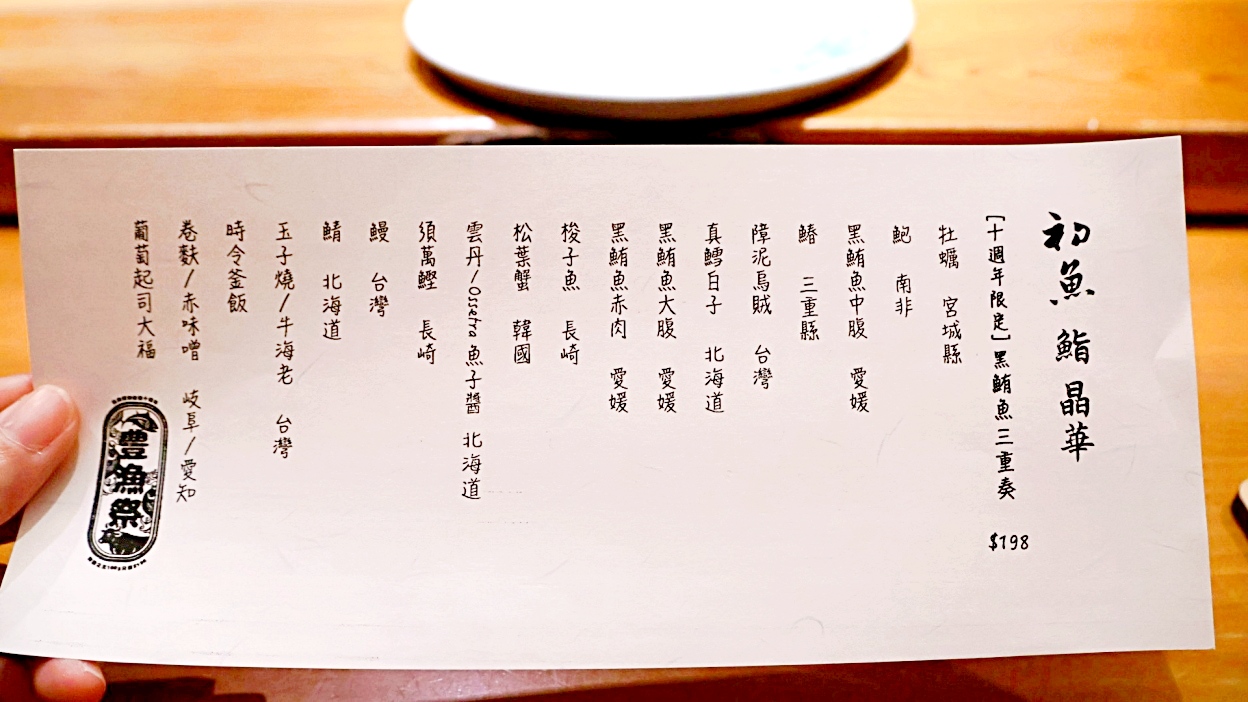 初魚 鮨 晶華
[十週年限定]黑鮪魚三重奏 $198
牡蠣 宮城縣
鮑 南非
黑鮪魚中腹 愛媛
鰆 三重縣
障泥烏賊 台灣
真鱈白子 北海道
黑鮪魚大腹 愛媛
黑鮪魚赤肉 愛媛
梭子魚 長崎
松葉蟹 韓國
雲丹/Ossetra魚子醬 北海道
須萬鰹 長崎
鰻 台灣
鯖 北海道
玉子燒/牛海老 台灣
時令釜飯
卷麩/赤味噌 岐阜/愛知
葡萄起司大福
豐漁祭